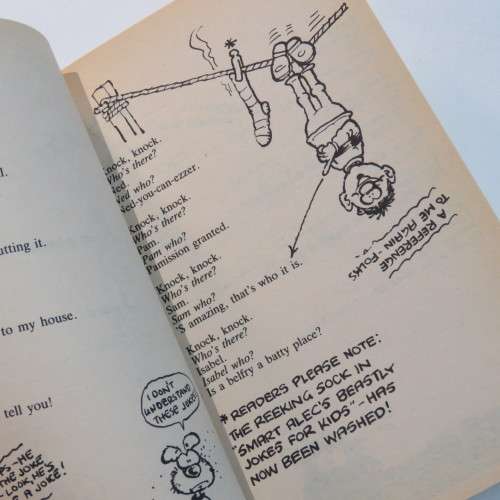 l.
utting it.
to my house.
tell you!
PS-HE
THE JOKE
LOOK, HE'S
A JOKE!
I DON'T
UNDERSTAND
THESE JOKES
Knock, knock.
Who's there?
Ned.
Ned who?
Ned-you-can-ezzer.
Knock, knock.
Who's there?
Pam.
Pam who?
Pamission granted.
Knock, knock.
Who's there?
Sam.
Sam who?
'S amazing, that's who it is.
Knock, knock.
Who's there?
Isabel.
Isabel who?
Is a belfry a batty place?
A REFERENCE
TO ME AGAIN-FOLKS
* READERS PLEASE NOTE:
THE REEKING SOCK IN
"SMART ALEC'S BEASTLY
JOKES FOR KIDS"-HAS
NOW BEEN WASHED!